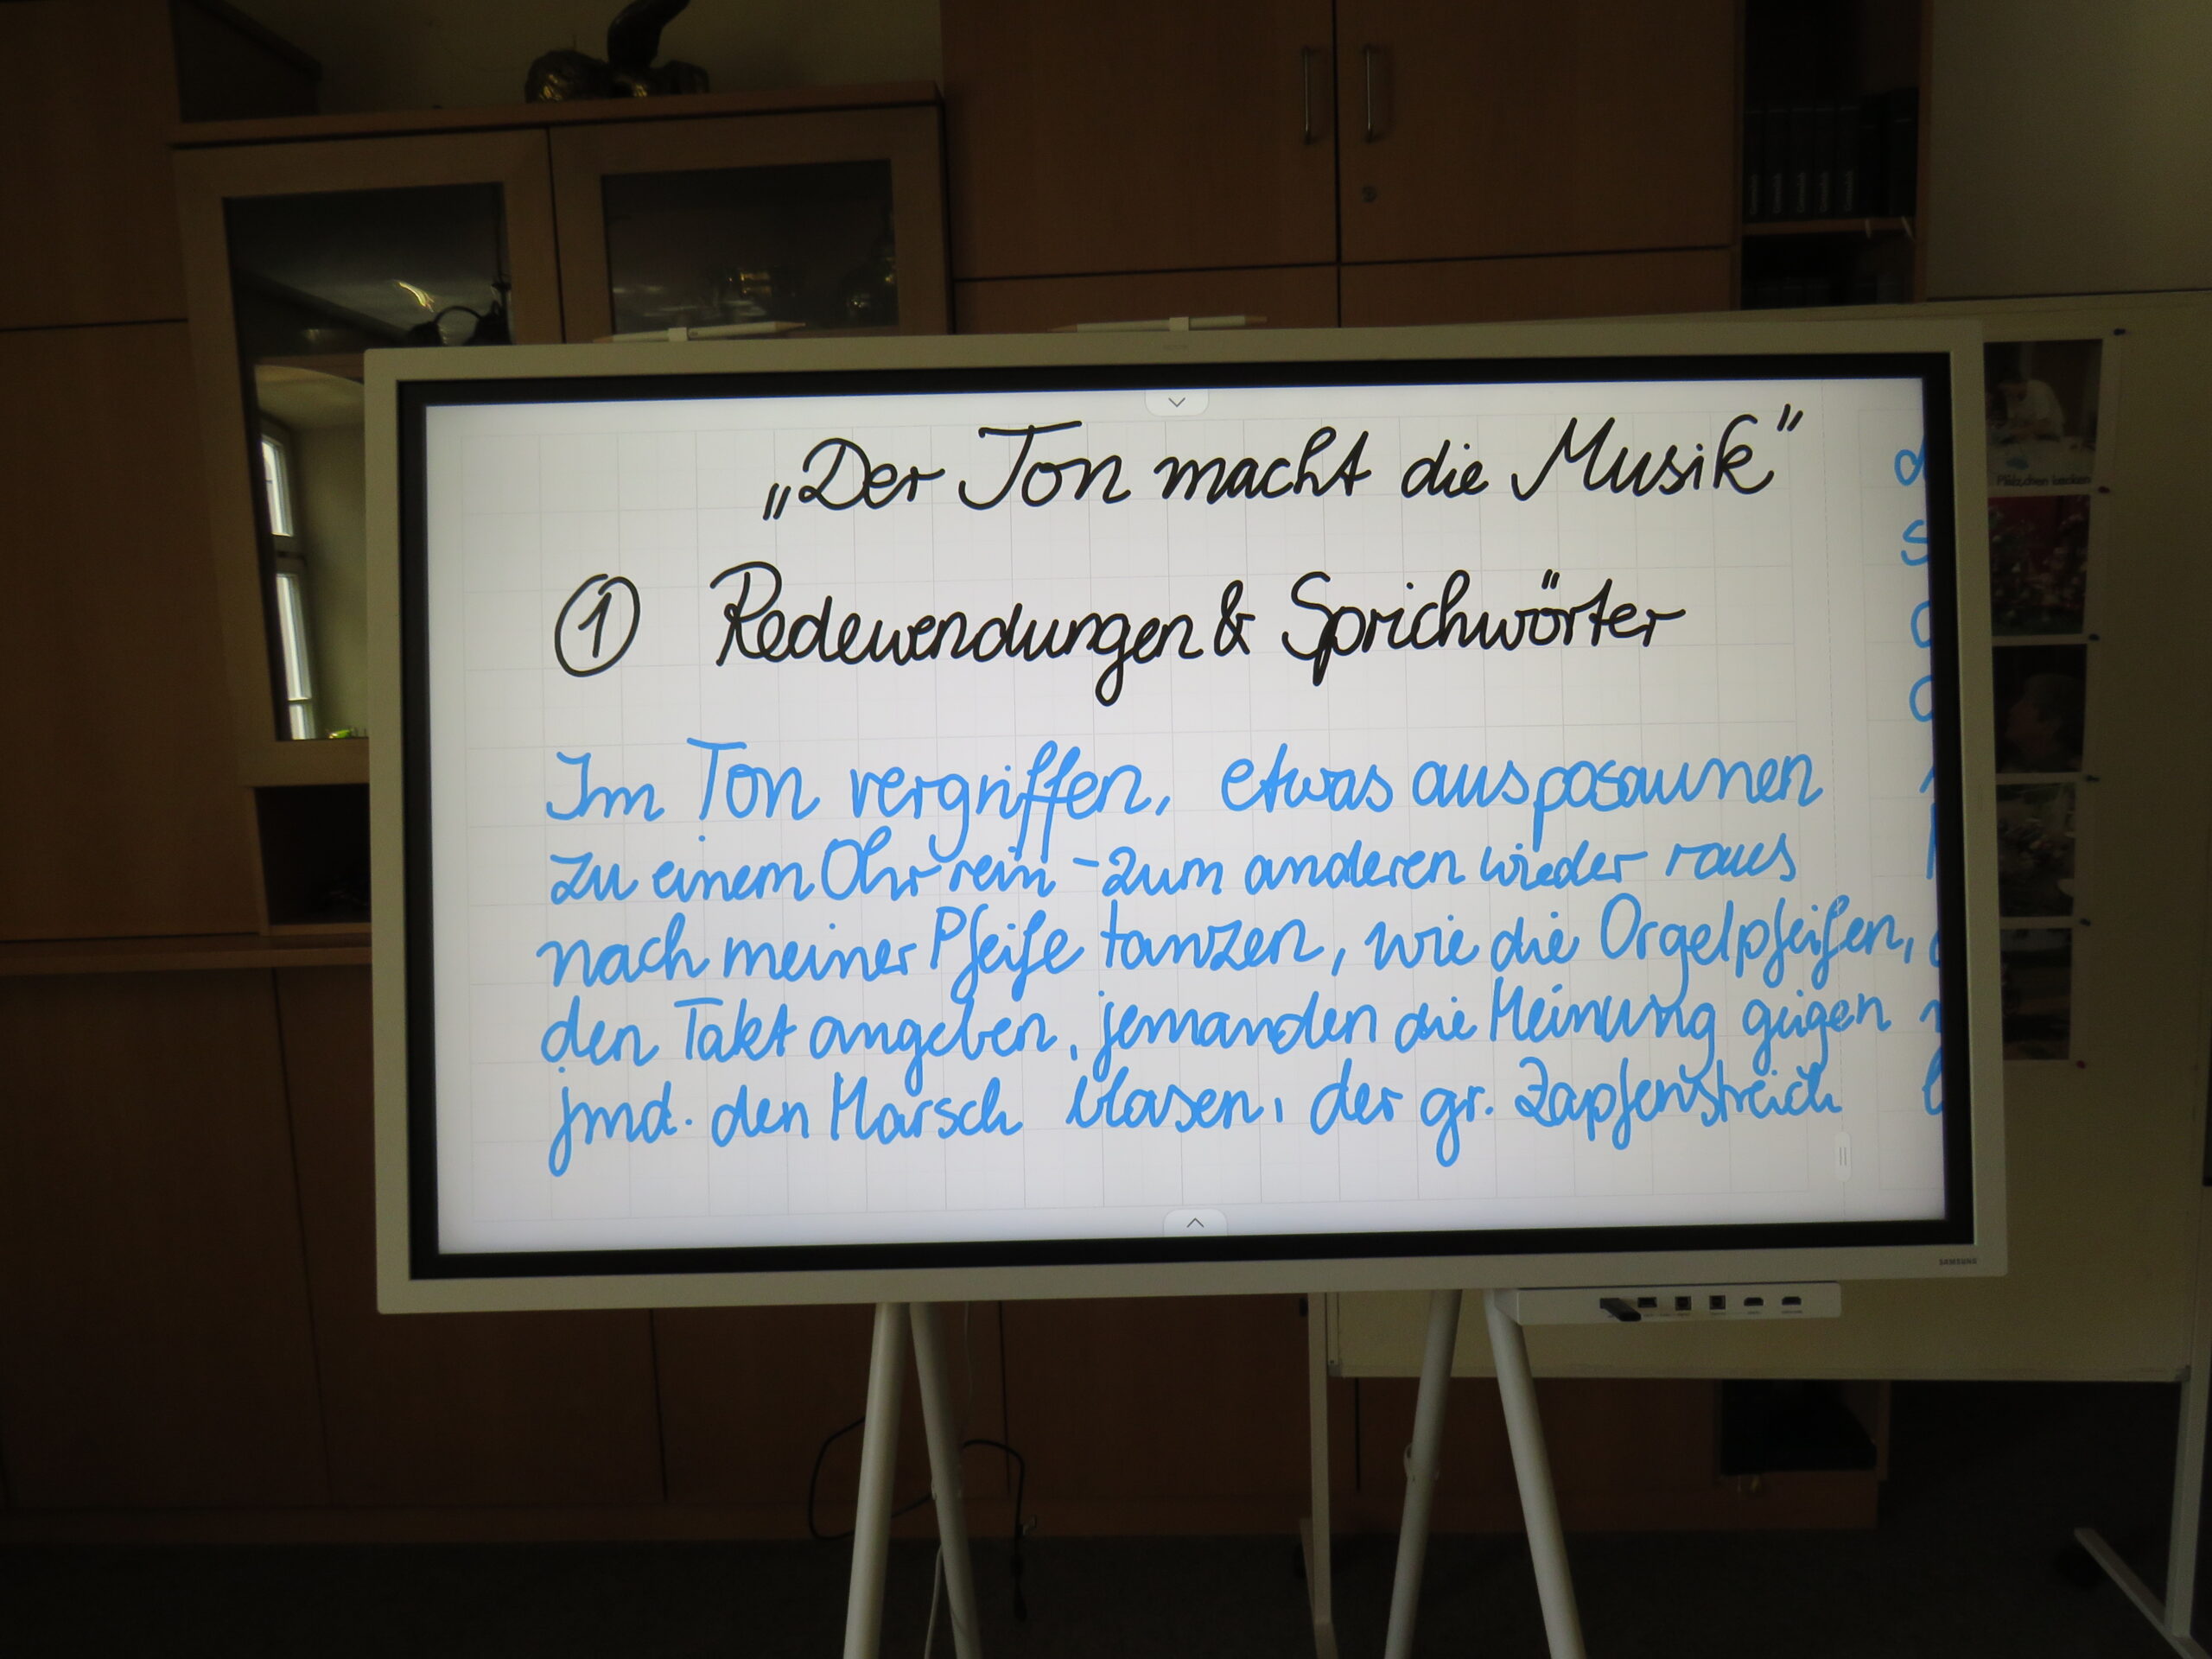 „Der Ton macht die Musik“
① Redewendungen & Sprichwörter
Im Ton vergriffen, etwas ausposaunen
zu einem Ohr rein - zum anderen wieder raus
nach meiner Pfeife tanzen, wie die Orgelpfeifen,
den Takt angeben, jemanden die Meinung geigen
jmd. den Marsch blasen, der gr. Zapfenstreich
SAMSUNG
Plätzchen backen